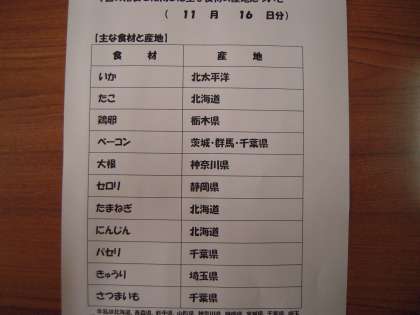 （ 11 月 16 日分）
【主な食材と産地】
食 材 産 地
いか 北太平洋
たこ 北海道
鶏卵 栃木県
ベーコン 茨城・群馬・千葉県
大根 神奈川県
セロリ 静岡県
たまねぎ 北海道
にんじん 北海道
パセリ 千葉県
きゅうり 埼玉県
さつまいも 千葉県